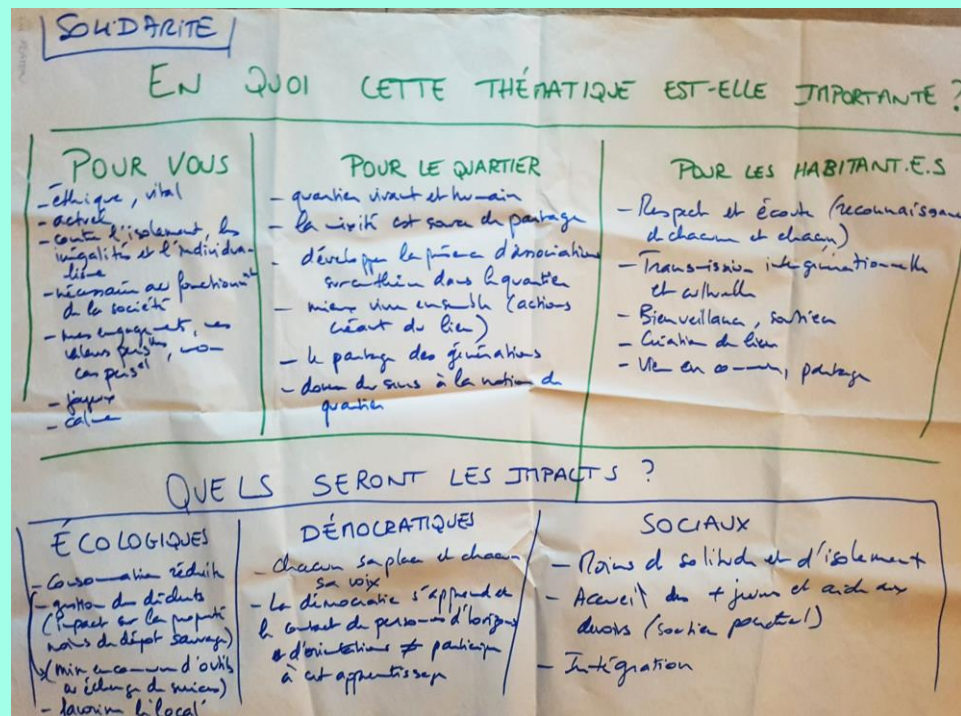 SOLIDARITE
EN QUOI CETTE THÉMATIQUE EST-ELLE IMPORTANTE ?
POUR VOUS
- éthique, vital
- actuel
- contre l'isolement, les
inégalités et l'individua-
lisme
- nécessaire au fonctionnmt
de la société
- mes engagemt, mes
valeurs persles, mon
cas persel
- joyeux
- calme
POUR LE QUARTIER
- quartier vivant et humain
- la mixité est source de partage
- développer la présence d'associations
sur ce thème dans le quartier
- mieux vivre ensemble (actions
créant du lien)
- le partage des générations
- donner du sens à la notion de
quartier
POUR LES HABITANT.E.S
- Respect et écoute (reconnaissance
de chacun et chacune)
- Transmission intergénérationnelle
et culturelle
- Bienveillance, soutien
- Création de lien
- Vie en commun, partage
QUELS SERONT LES IMPACTS ?
ÉCOLOGIQUES
- Consommation réduite
- gestion des déchets
(impact sur la propreté
moins de dépôt sauvage)
(mise en commun d'outils
ou échange de services)
- favoriser le "local"
DÉMOCRATIQUES
- chacun sa place et chacun
sa voix
- La démocratie s'apprend et
le contact de personnes d'origines
et d'orientations ≠ participe
à cet apprentissage
SOCIAUX
- Moins de solitude et d'isolement
- Accueil des + jeunes et aide aux
devoirs (soutien ponctuel)
- Intégration